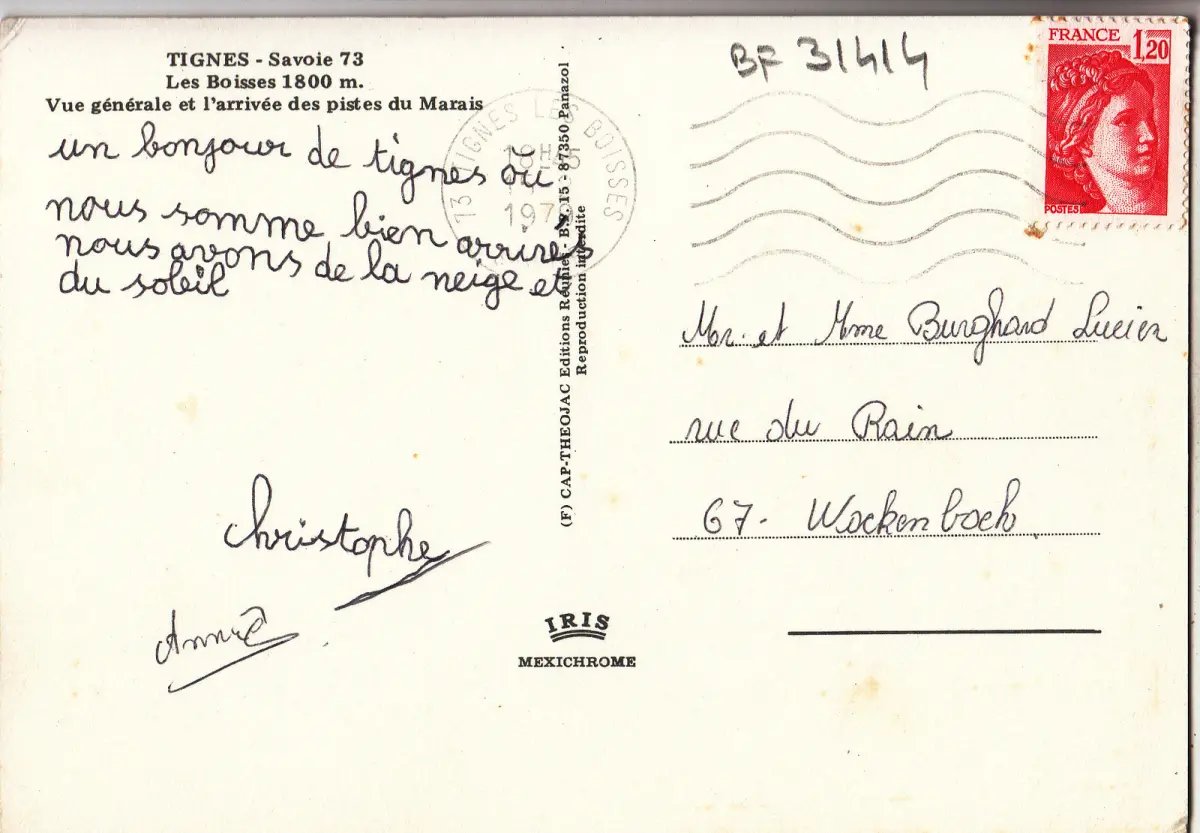 TIGNES - Savoie 73
Les Boisses 1800 m.
Vue générale et l'arrivée des pistes du Marais
un bonjour de tignes où
nous somme bien arrivés
nous avons de la neige et
du soleil
christophe
Annie
73 TIGNES LES BOISSES
18H45
197
(F) CAP-THEOJAC Editions Réunies - B.P. 15 - 87350 Panazol
Reproduction interdite
IRIS
MEXICHROME
BF 31414
FRANCE 1,20
POSTES
Mr. et Mme Burghard Lucien
rue du Rain
67. Wackenbach